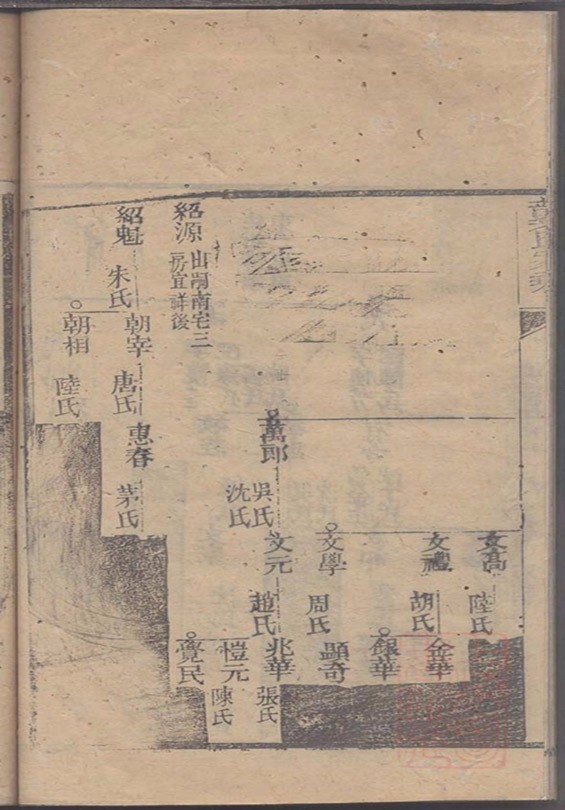 文高
陸氏
文禮
胡氏
金華
銀華
文學
周氏
顯奇
萬郎
吳氏
沈氏
文元
趙氏
兆華
張氏
愷元
陳氏
覺民
紹源
出嗣南宅三
房宜詳後
紹魁
朱氏
朝宰
唐氏
惠春
茅氏
朝相
陸氏